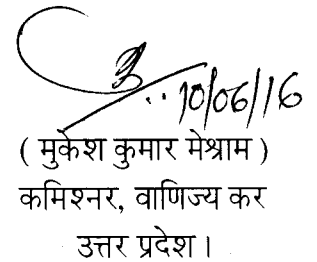 10/06/16
( मुकेश कुमार मेश्राम )
कमिश्नर, वाणिज्य कर
उत्तर प्रदेश ।